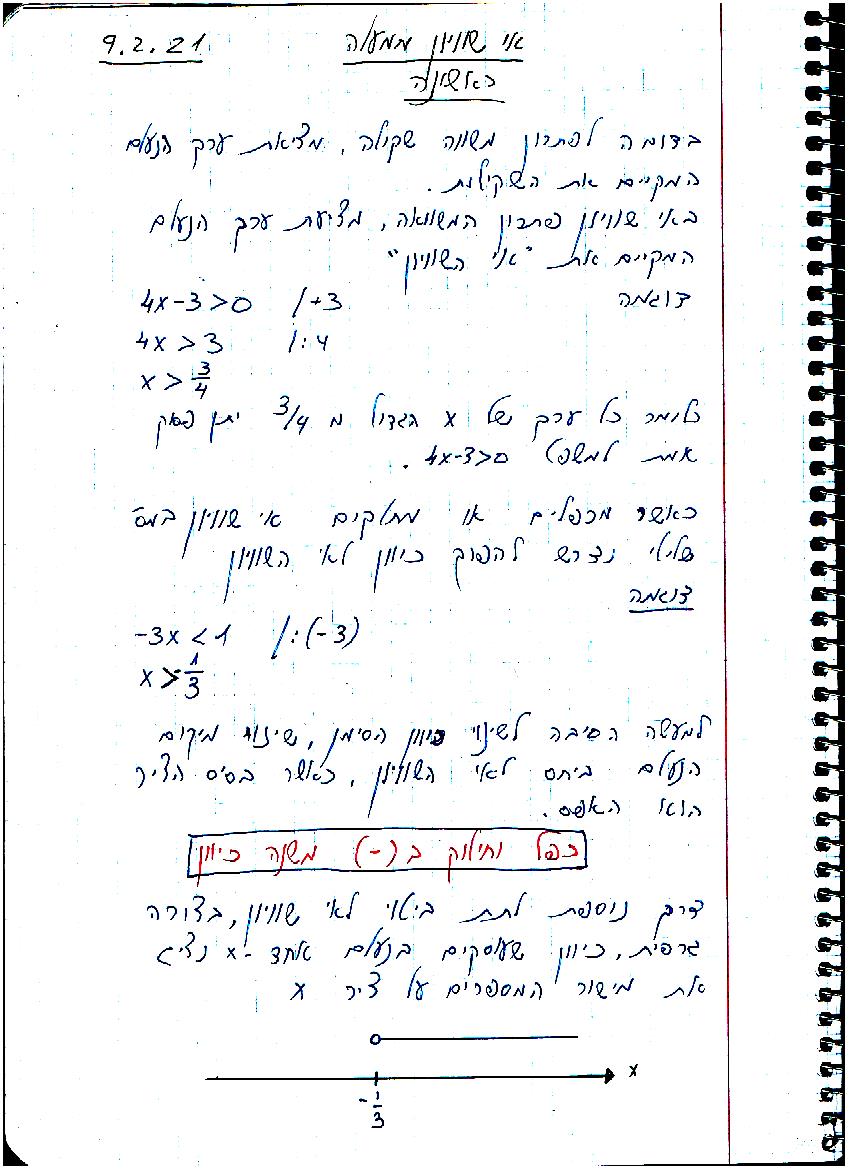 9.2.21
אי שוויון ממעלה
ראשונה
בדומה לפתרון משוואה שקילה, מציאת ערך הנעלם
המקיים את השקילות.
באי שוויון פתרון המשוואה, מציעת ערך הנעלם
המקיים את "אי השוויון"
דוגמה
4x-3>0 /+3
4x>3 /:4
x>3/4
כלומר כל ערך של x הגדול מ 3/4 יתן פסק
אמת למשפט 4x-3>0.
כאשר מכפלים או מחלקים אי שוויון במס'
שלילי נדרש להפוך כיוון לאי השוויון
דוגמה
-3x<1 /:(-3)
x>-1/3
למעשה הסיבה לשינוי כיוון הסימן, שינוי מיקום
הנעלם ביחס לאי השוויון, כאשר בסיס הציר
הוא האפס.
כפל וחילוק ב (-) משנה כיוון
דרך נוספת לתת ביטוי לאי שוויון, בצורה
גרפית, כיוון שעוסקים בנעלם אחד -x נציג
את מישור המספרים על ציר x
x
-1/3